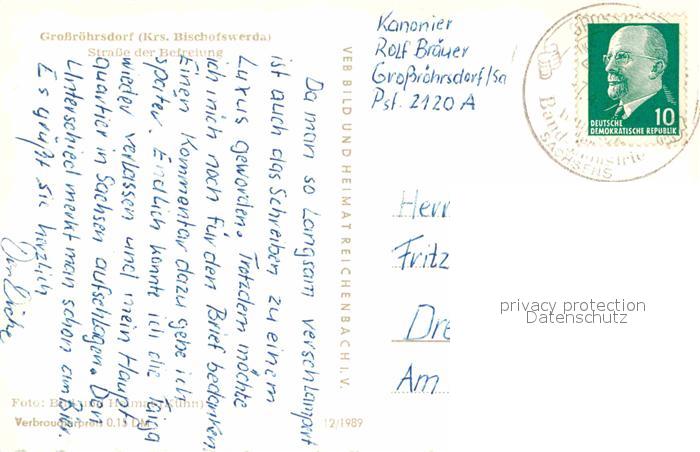 Großröhrsdorf (Krs. Bischofswerda)
Straße der Befreiung
Da man so Langsam verschlampert
ist auch das Schreiben zu einem
Luxus geworden. Trotzdem möchte
ich mich noch für den Brief bedanken.
Einen Kommentar dazu gebe ich
später. Endlich konnte ich die Taiga
wieder verlassen und mein Haupt
quartier in Sachsen aufschlagen. Den
Unterschied merkt man schon am Bier.
Es grüßt sie herzlich
Foto: Bild und Heimat (Kühn)
Verbraucherpreis 0.15 DM
12/1989
VEB BILD UND HEIMAT REICHENBACH I. V.
Kanonier
Rolf Bräuer
Großröhrsdorf/Sa
Psf. 2120 A
DEUTSCHE
DEMOKRATISCHE REPUBLIK
10
SACHSENS
Herr
Fritz
Dre
Am
privacy protection
Datenschutz